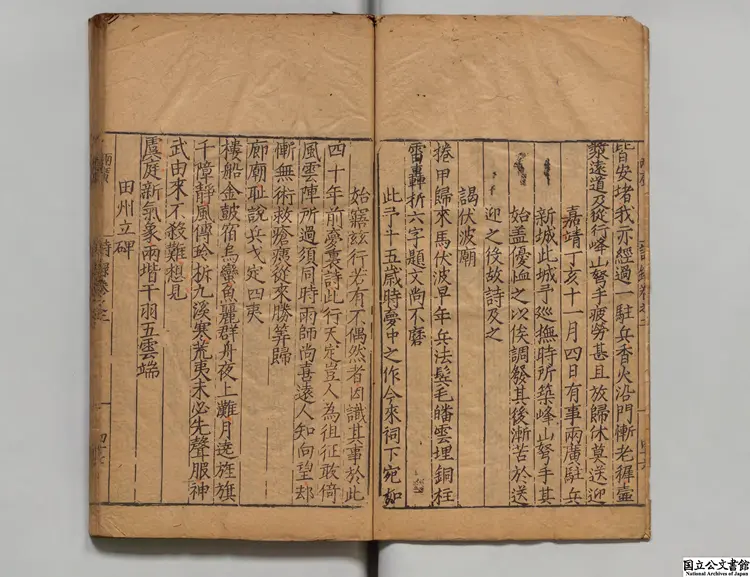 皆安堵我亦經過一駐兵香火沿門慚老穉壺
漿遠道及從行峰山弩手疲勞甚且放歸休莫送迎
嘉靖丁亥十一月四日有事兩廣駐兵
新城此城予巡撫時所築峰山弩手其
始蓋優恤之以俟調發其後漸苦於送
迎之役故詩及之
謁伏波廟
捲甲歸來馬伏波早年兵法鬂毛皤雲埋銅柱
雷轟折六字題文尚不磨
此予十五歲時夢中之作今來祠下宛如
始寤玆行若有不偶然者因識其事於此
四十年前夢裏詩此行天定豈人為徂征敢倚
風雲陣所過須同時雨師尚喜遠人知向望却
慚無術救瘡痍從來勝筭歸
廊廟耻說兵戈定四夷
樓船金鼓宿烏蠻魚麗群舟夜上灘月遶旌旗
千障靜風傳鈴柝九溪寒荒夷未必先聲服神
武由來不殺難想見
虞庭新氣象兩堦干羽五雲端
田州立碑
国立公文書館
National Archives of Japan